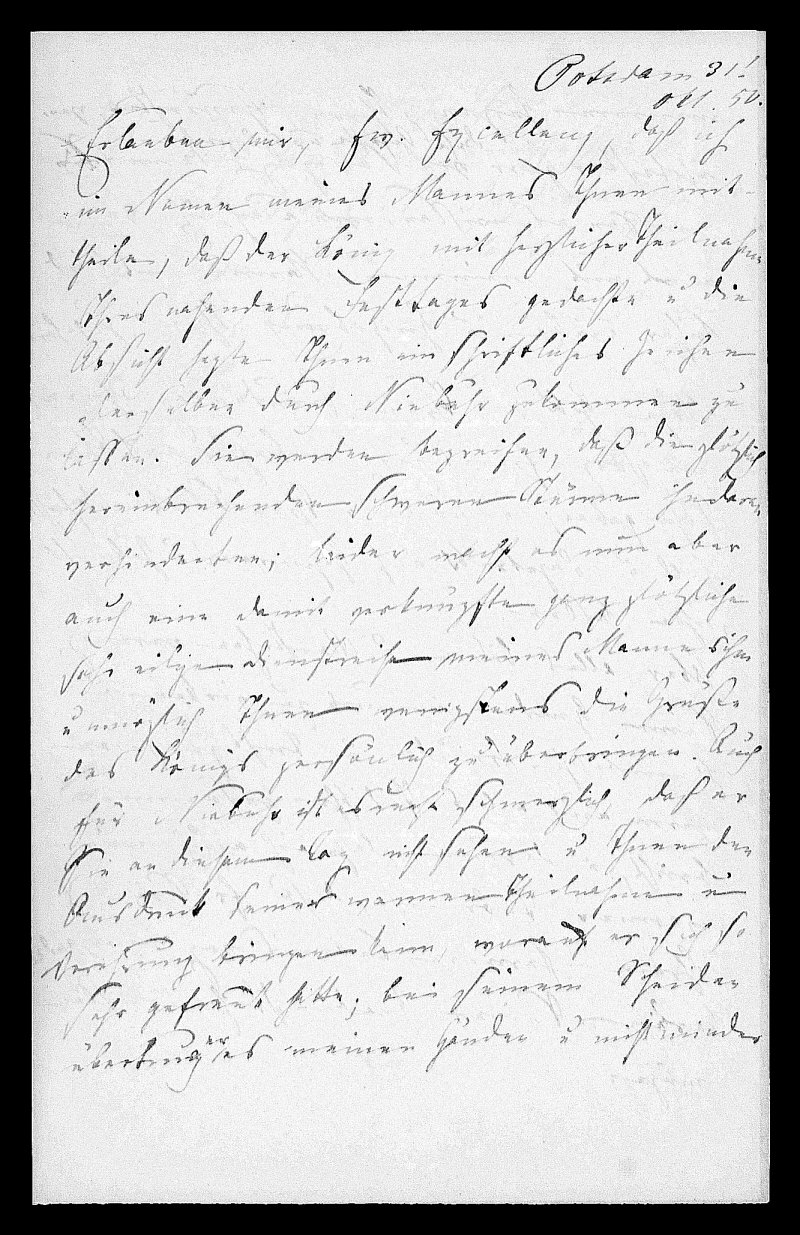 Potsdam 31t
Okt. 50.
Erlauben mir, Ew. Excellenz, daß ich
im Namen meines Mannes Ihnen mit-
theile, daß der König mit herzlicher Theilnahme
Ihres nahenden Festtages gedachte u die
Absicht hegte Ihnen ein schriftliches Zeichen
derselben durch Niebuhr zukommen zu
lassen. Sie werden begreifen, daß die plötzlich
hereinbrechenden schweren Stürme ihn daran
verhinderten; leider macht es nun aber
auch eine damit verknüpfte ganz plötzliche
sehr eilige Dienstreise meines Mannes ihm
unmöglich Ihnen wenigstens die Grüße
des Königs persönlich zu überbringen. Auch
für Niebuhr ist es recht schmerzlich, daß er
Sie an diesem Tag nicht sehen u Ihnen den
Ausdruck seiner warmen Theilnahme u
Verehrung bringen kann, worauf er sich so
sehr gefreut hatte; bei seinem Scheiden
übertrug er es meinen Händen u nicht minder